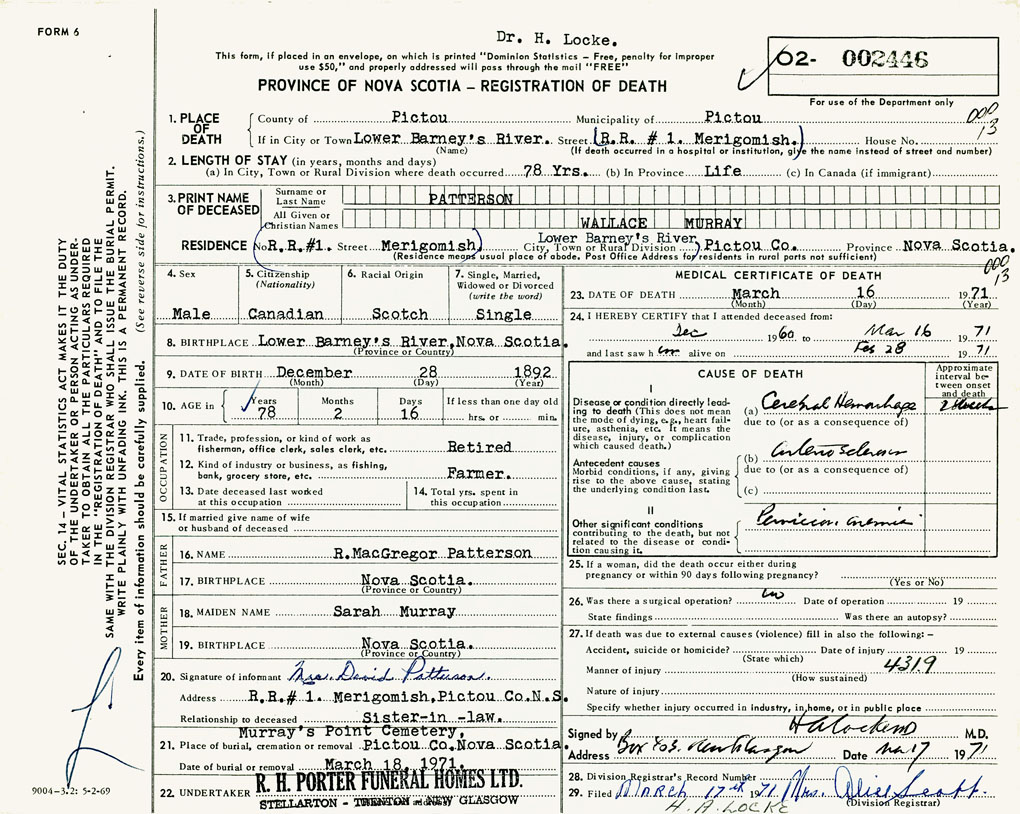 FORM 6
Dr. H. Locke.
This form, if placed in an envelope, on which is printed "Dominion Statistics – Free, penalty for improper
use $50," and properly addressed will pass through the mail "FREE"
PROVINCE OF NOVA SCOTIA – REGISTRATION OF DEATH
02- 002446
For use of the Department only
000
13
1. PLACE OF DEATH
County of Pictou Municipality of Pictou
If in City or Town Lower Barney's River. Street (R.R. #1. Merigomish.) House No.
(Name) (If death occurred in a hospital or institution, give the name instead of street and number)
2. LENGTH OF STAY (in years, months and days)
(a) In City, Town or Rural Division where death occurred 78 Yrs. (b) In Province Life (c) In Canada (if immigrant)
3. PRINT NAME OF DECEASED
Surname or Last Name PATTERSON
All Given or Christian Names WALLACE MURRAY
RESIDENCE No. R.R.#1. Street Merigomish City, Town or Rural Division Lower Barney's River Pictou Co. Province Nova Scotia.
(Residence means usual place of abode. Post Office Address for residents in rural parts not sufficient)
4. Sex
Male
5. Citizenship
(Nationality)
Canadian
6. Racial Origin
Scotch
7. Single, Married,
Widowed or Divorced
(write the word)
Single
8. BIRTHPLACE Lower Barney's River, Nova Scotia.
(Province or Country)
9. DATE OF BIRTH December 28 1892
(Month) (Day) (Year)
10. AGE in
Years Months Days If less than one day old
78 2 16 hrs. or min.
OCCUPATION
11. Trade, profession, or kind of work as
fisherman, office clerk, sales clerk, etc. Retired
12. Kind of industry or business, as fishing,
bank, grocery store, etc. Farmer.
13. Date deceased last worked
at this occupation
14. Total yrs. spent in
this occupation
15. If married give name of wife
or husband of deceased
FATHER
16. NAME R.MacGregor Patterson
17. BIRTHPLACE Nova Scotia.
(Province or Country)
MOTHER
18. MAIDEN NAME Sarah Murray
19. BIRTHPLACE Nova Scotia.
(Province or Country)
20. Signature of informant Mrs. David Patterson.
Address R.R.#1. Merigomish, Pictou Co.N.S.
Relationship to deceased Sister-in -law.
Murray's Point Cemetery,
21. Place of burial, cremation or removal Pictou Co. Nova Scotia.
Date of burial or removal March 18, 1971.
22. UNDERTAKER R. H. PORTER FUNERAL HOMES LTD.
STELLARTON - TRENTON and NEW GLASGOW
MEDICAL CERTIFICATE OF DEATH
000
13
23. DATE OF DEATH March 16 1971
(Month) (Day) (Year)
24. I HEREBY CERTIFY that I attended deceased from:
Dec 1960 to Mar 16 1971
and last saw him alive on Feb 28 1971
CAUSE OF DEATH
Approximate
interval be-
tween onset
and death
I
Disease or condition directly lead-
ing to death (This does not mean
the mode of dying, e.g., heart fail-
ure, asthenia, etc. It means the
disease, injury, or complication
which caused death.)
(a) Cerebral Hemorrhage 2 weeks
due to (or as a consequence of)
Antecedent causes
Morbid conditions, if any, giving
rise to the above cause, stating
the underlying condition last.
(b) Arteriosclerosis
due to (or as a consequence of)
(c)
II
Other significant conditions
contributing to the death, but not
related to the disease or condi-
tion causing it.
Pernicious anemia
25. If a woman, did the death occur either during
pregnancy or within 90 days following pregnancy?
(Yes or No)
26. Was there a surgical operation? no Date of operation 19
State findings Was there an autopsy?
27. If death was due to external causes (violence) fill in also the following: –
Accident, suicide or homicide? Date of injury 19
(State which)
Manner of injury 4319
(How sustained)
Nature of injury
Specify whether injury occurred in industry, in home, or in public place
Signed by H A Locke MD M.D.
Address Box 403. New Glasgow Date Mar 17 1971
28. Division Registrar's Record Number
29. Filed March 17th 1971 Mrs. Alice Scott.
(Division Registrar)
H. A. LOCKE
SEC. 14 – VITAL STATISTICS ACT MAKES IT THE DUTY
OF THE UNDERTAKER OR PERSON ACTING AS UNDER-
TAKER TO OBTAIN ALL THE PARTICULARS REQUIRED
IN THE "REGISTRATION OF DEATH" AND TO FILE THE
SAME WITH THE DIVISION REGISTRAR WHO SHALL ISSUE THE BURIAL PERMIT.
WRITE PLAINLY WITH UNFADING INK. THIS IS A PERMANENT RECORD.
Every item of information should be carefully supplied. (See reverse side for instructions.)
9004-3.2: 5-2-69